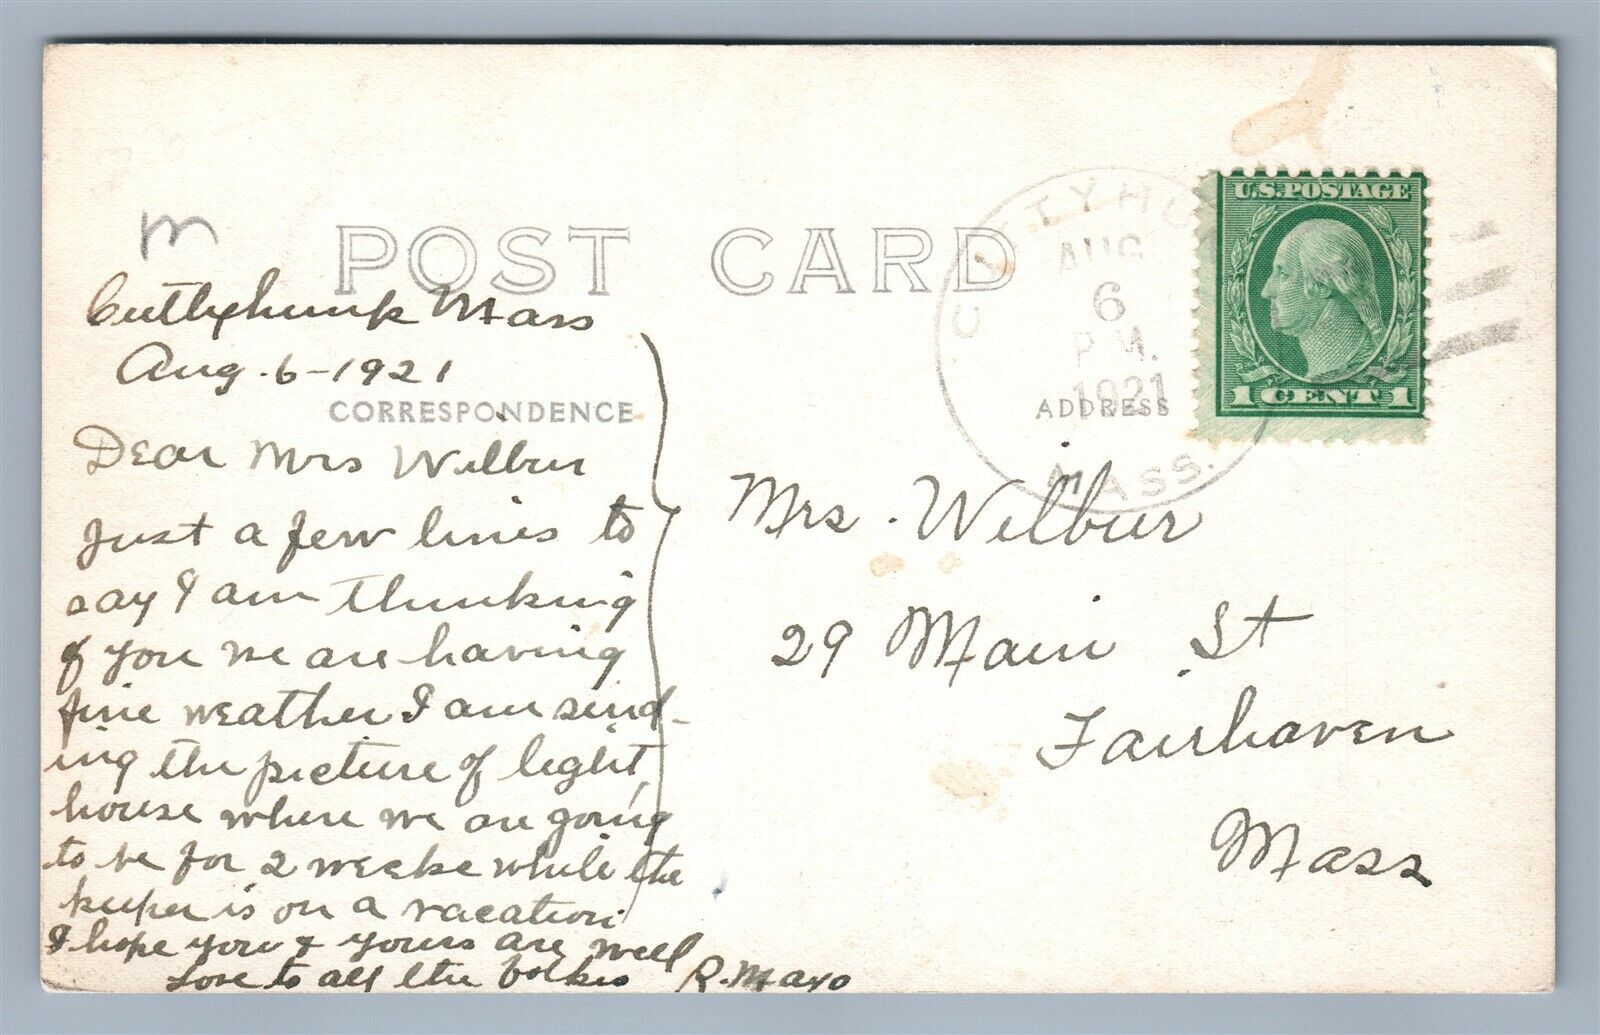 m
POST CARD
Cuttyhunk Mass
Aug. 6-1921
CORRESPONDENCE
Dear Mrs Wilbur
Just a few lines to
say I am thinking
of you we are having
fine weather I am send-
ing the picture of light
house where we are going
to be for 2 weeks while the
keeper is on a vacation
I hope you & yours are well
Love to all the folks R. Mayo
CUTTYHU
AUG
6
P.M.
1921
MASS.
U.S. POSTAGE
1 CENT 1
ADDRESS
Mrs. Wilbur
29 Main St
Fairhaven
Mass